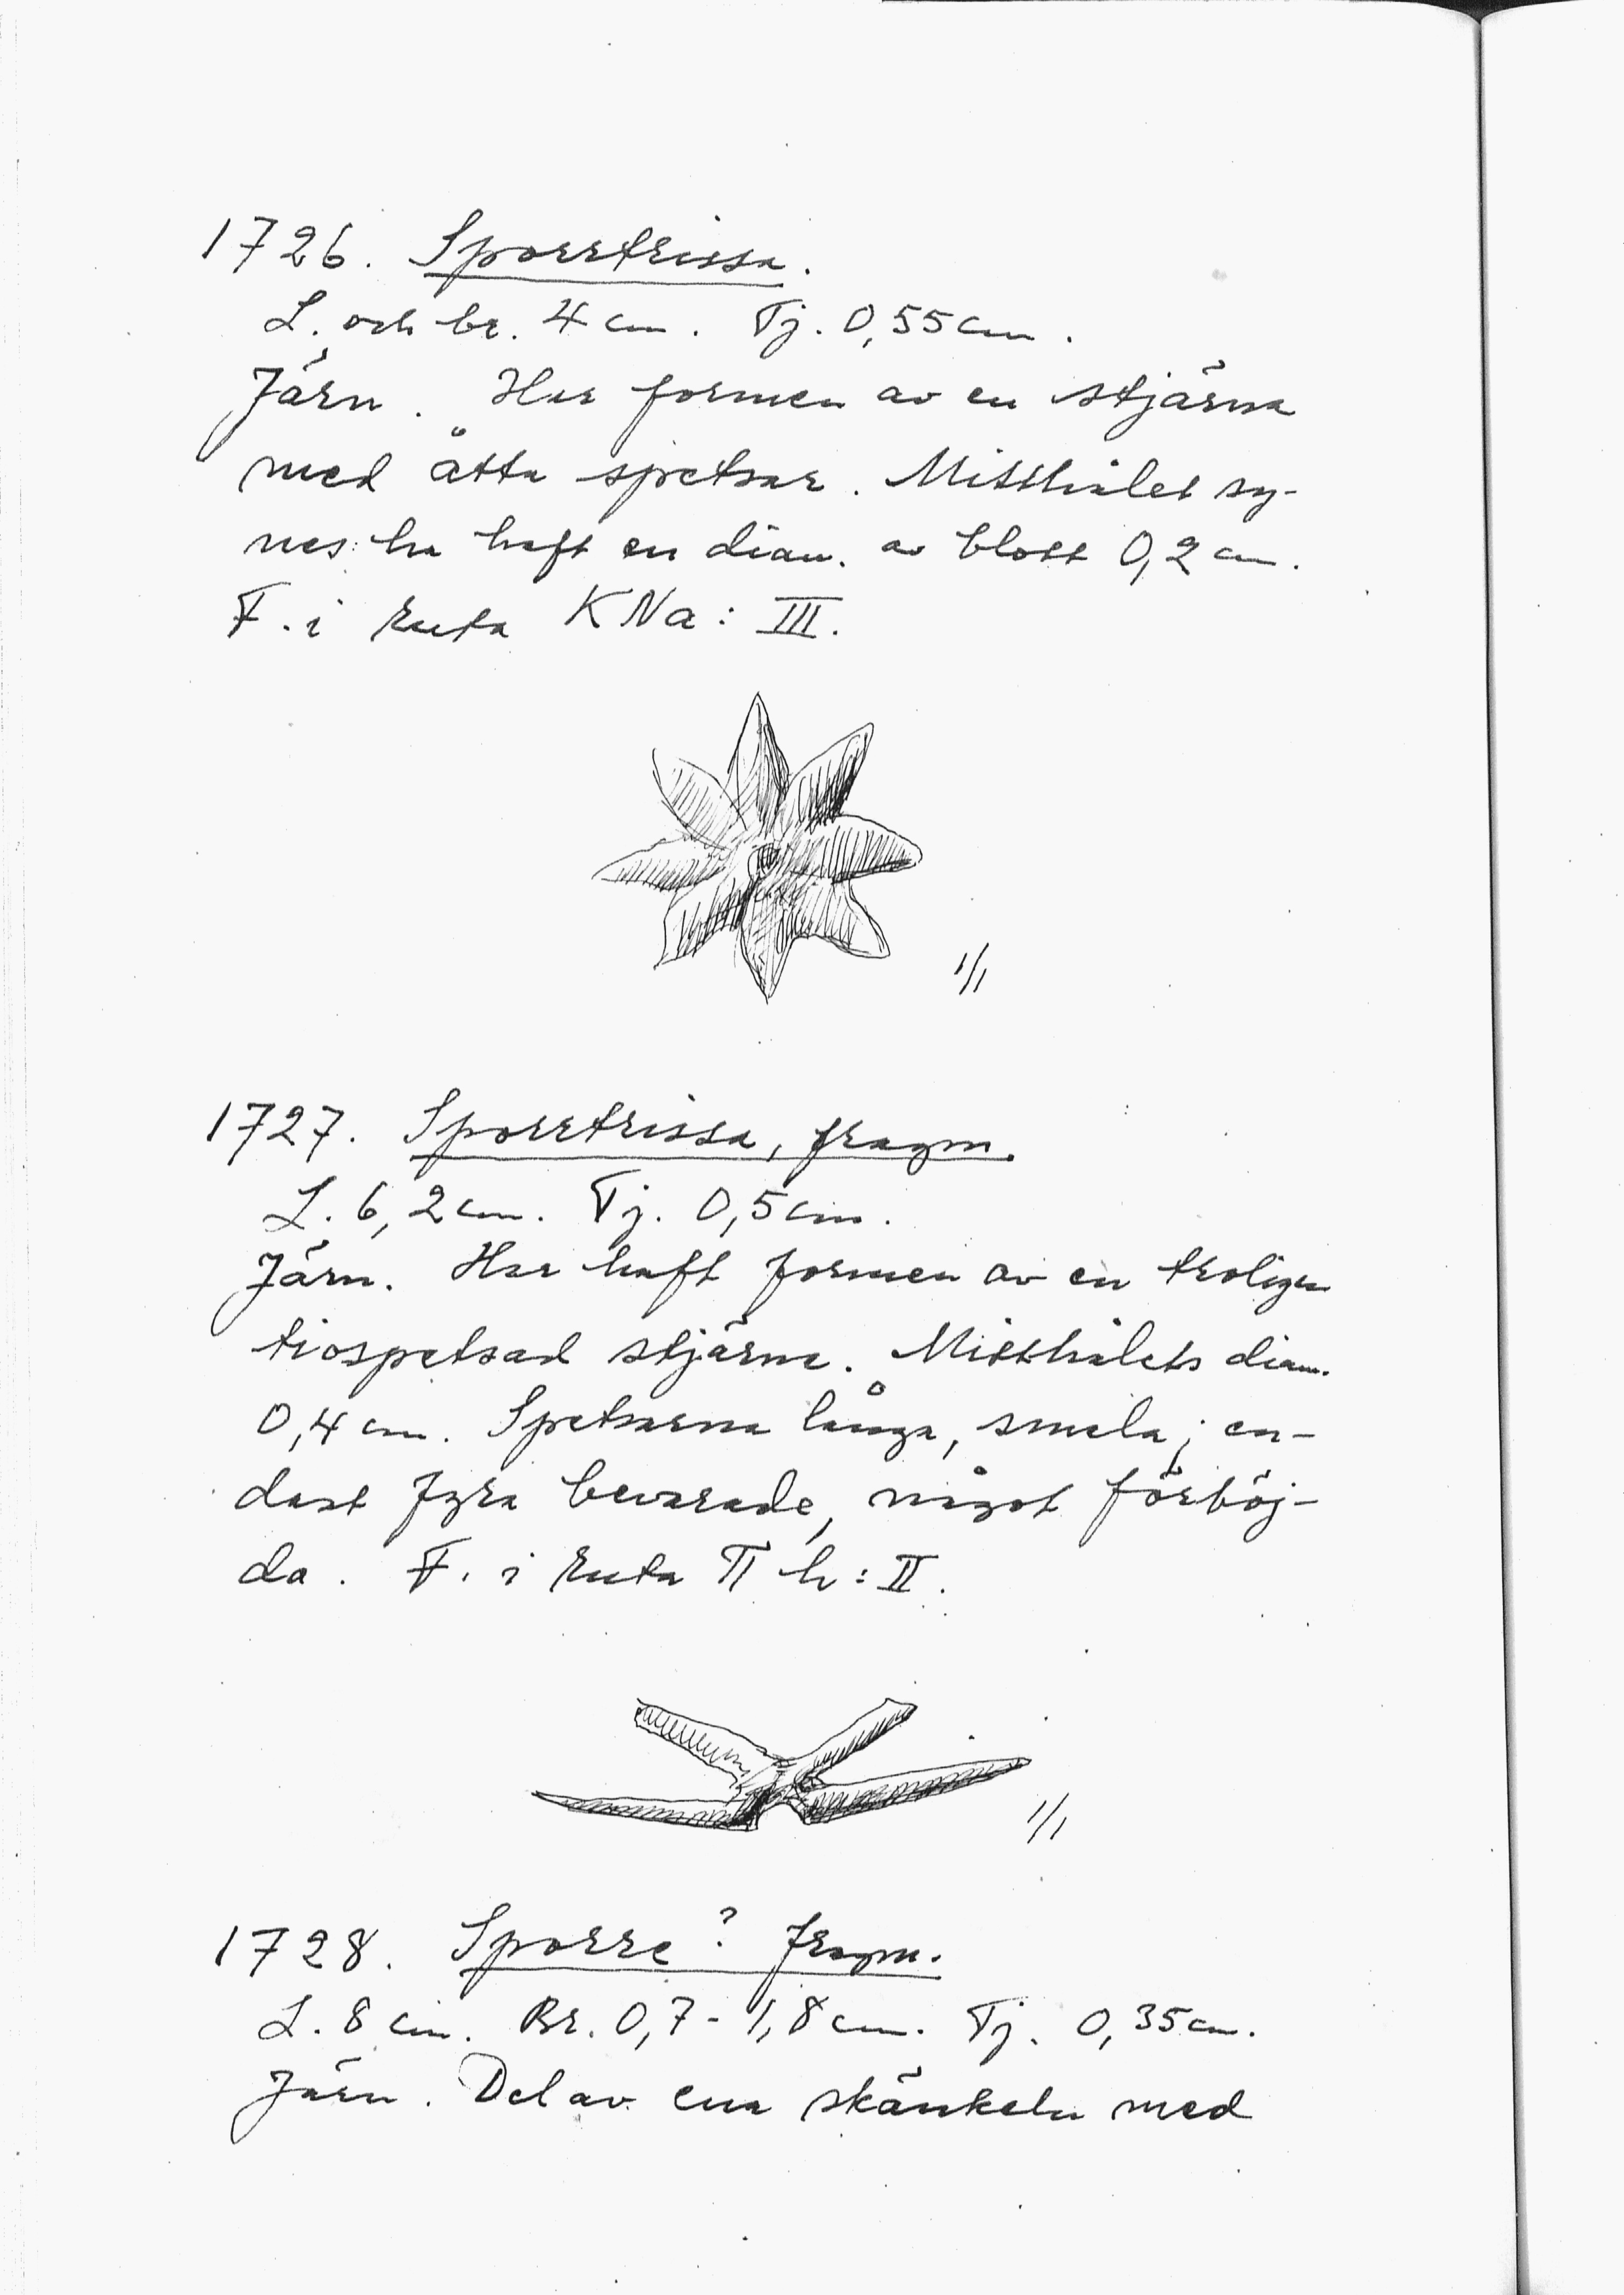 1726. Sporrtrissa.
L. och br. 4 cm. Tj. 0,55 cm.
Järn. Har formen av en stjärna
med åtta spetsar. Mitthålet sy-
nes ha haft en diam. av blott 0,2 cm.
F. i ruta KNa: III.
1/1
1727. Sporrtrissa, fragm.
L. 6,2 cm. Tj. 0,5 cm.
Järn. Har haft formen av en troligen
tiospetsad stjärna. Mitthålets diam.
0,4 cm. Spetsarna långa, smala; en-
dast fyra bevarade, något förböj-
da. F. i ruta Π h: II.
1/1
1728. Sporre? fragm.
L. 8 cm. Br. 0,7-1,8 cm. Tj. 0,35 cm.
Järn. Del av ena skänkeln med